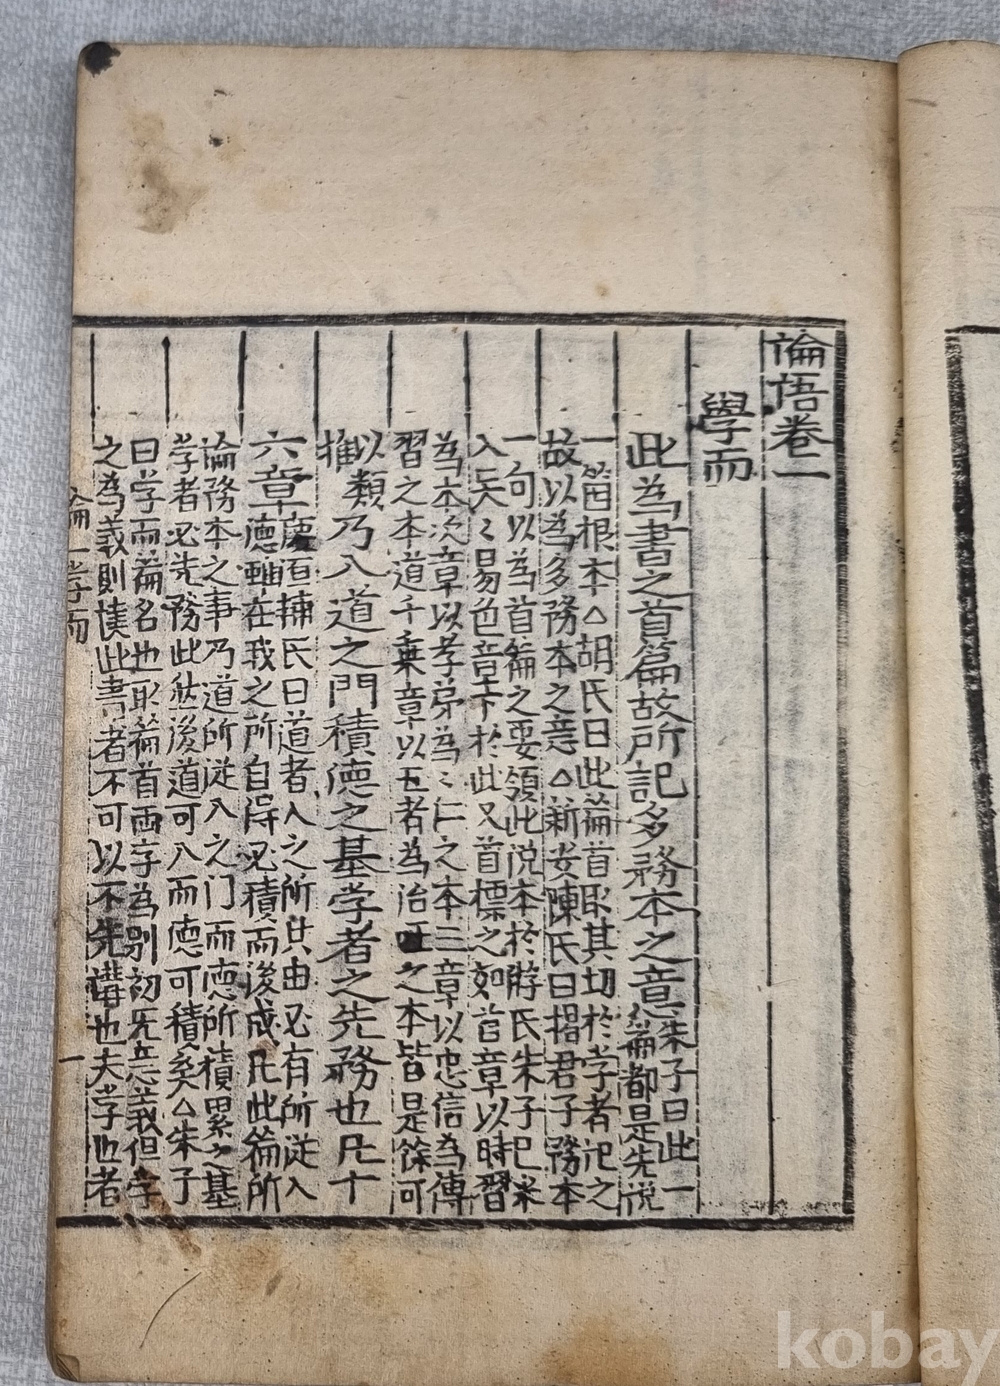 論語卷一
學而
此為書之首篇故所記多務本之意朱子曰此一
篇都是先説
一箇根本△胡氏曰此篇首取其切於学者记之
故以為多務本之意△新安陳氏曰揭君子務本
一句以為首篇之要領此说本於游氏朱子已采
入矣〻易色章下於此又首標之如首章以時習
為本次章以孝弟為〻仁之本三章以忠信為傳
習之本道千乗章以五者為治囯之本皆是餘可
以類
推
乃入道之門積德之基学者之先務也凡十
六章慶源輔氏曰道者人之所共由必有所従入
德雖在我之所自得必積而後成凡此篇所
論務本之事乃道所従入之门而德所積累之基
学者必先務此然後道可入而德可積矣△朱子
曰学而篇名也取篇首両字為别初无意義但学
之為義則讀此書者不可以不先講也夫学也者
論一 学而 一
kobay